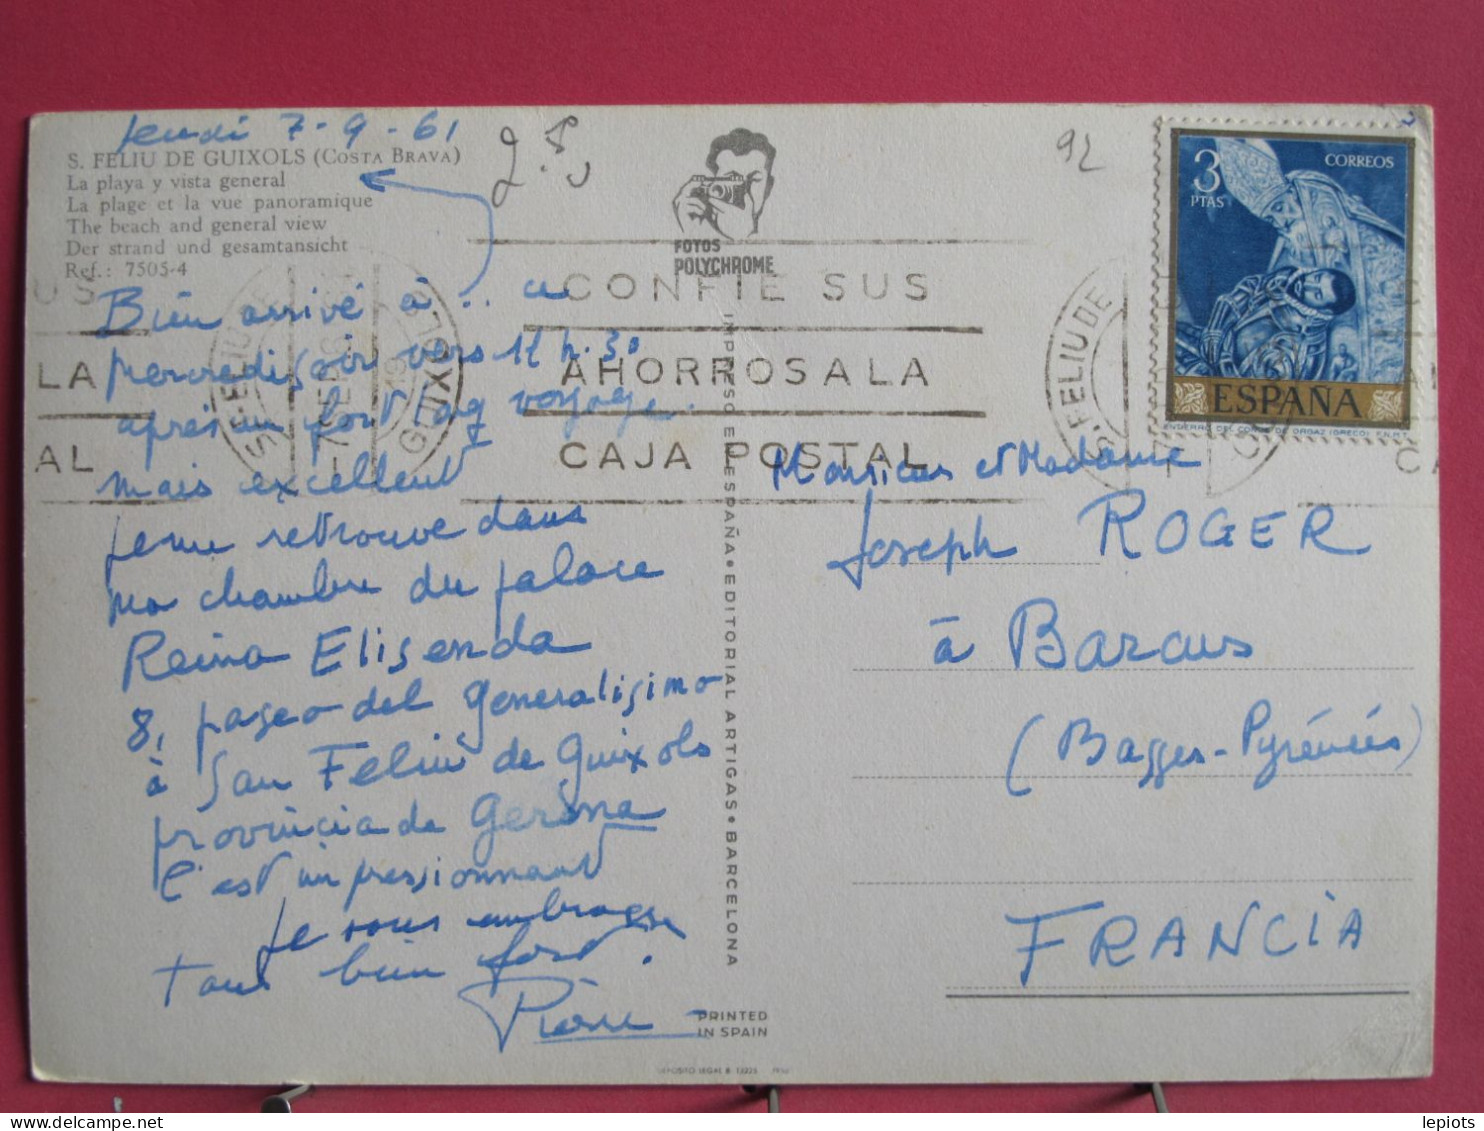 Jeudi 7-9-61
S. FELIU DE GUIXOLS (COSTA BRAVA)
La playa y vista general
La plage et la vue panoramique
The beach and general view
Der strand und gesamtansicht
Ref.: 7505-4
Bien arrivé à .. ce
mercredi soir vers 11 h. 30
après un fort voyage.
mais excellent
Je me retrouve dans
ma chambre du palace
Reina Elisenda
8, paseo del Generalisimo
à San Feliu de Guixols
provincia de Gerona
C'est impressionnant
Je vous embrasse
tous bien fort.
Pierre
92
FOTOS
POLYCHROME
CONFIE SUS
AHORROS A LA
CAJA POSTAL
US
LA
AL
S. FELIU DE
GUIXOLS
IMPRESO EN ESPAÑA • EDITORIAL ARTIGAS • BARCELONA
PRINTED
IN SPAIN
DEPOSITO LEGAL B.
3
PTAS
CORREOS
ESPAÑA
ENTIERRO DEL CONDE DE ORGAZ (GRECO) F.N.M.T.
S. FELIU DE
Monsieur et Madame
Joseph ROGER
à Barcus
(Basses-Pyrénées)
FRANCIA
lepiots